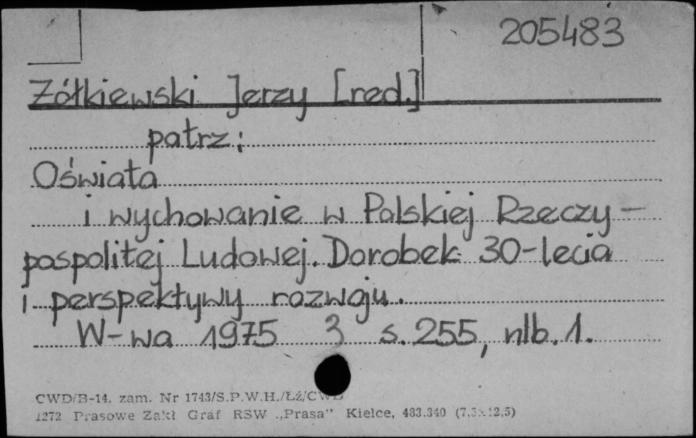 205483
Żółkiewski Jerzy [red.]
patrz:
Oświata
i wychowanie w Polskiej Rzeczy-
pospolitej Ludowej. Dorobek 30-lecia
i perspektywy rozwoju.
W-wa 1975 3 s. 255, nlb. 1.
CWD/B-14. zam. Nr 1743/S.P.W.H./Łź/CWD
1272 Prasowe Zakł Graf RSW „Prasa” Kielce, 483.340 (7,5x12,5)